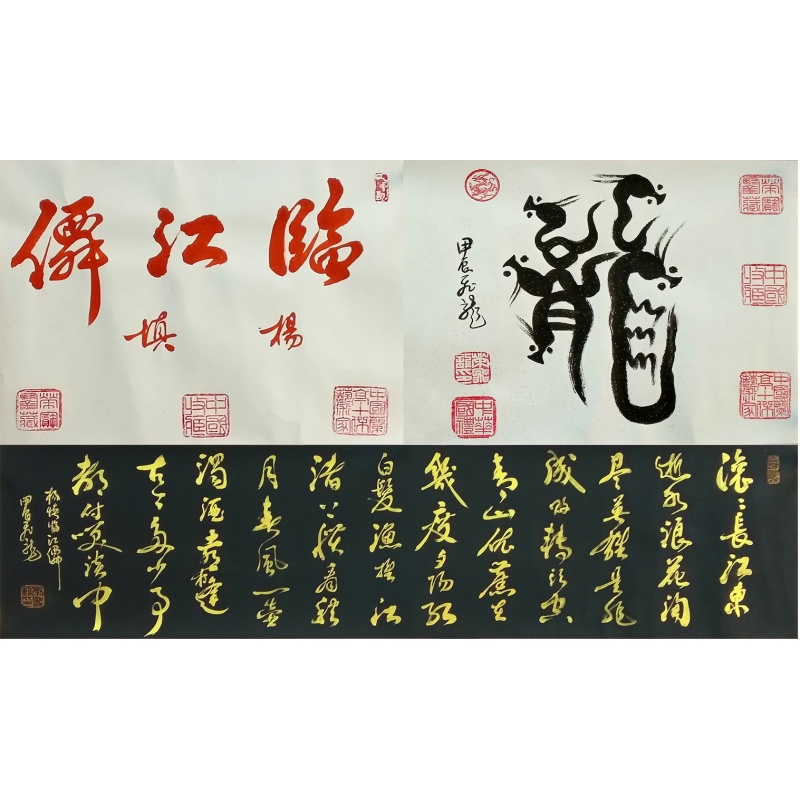 臨江僊
楊慎
龍
甲辰飛龍
中華國禮
滾〻長江東
逝水浪花淘
尽英雄是非
成敗轉頭空
青山依舊在
幾度夕陽紅
白髮漁樵江
渚上慣看秋
月春風一壺
濁酒喜相逢
古今多少事
都付笑談中
楊慎臨江仙
甲辰飛龍